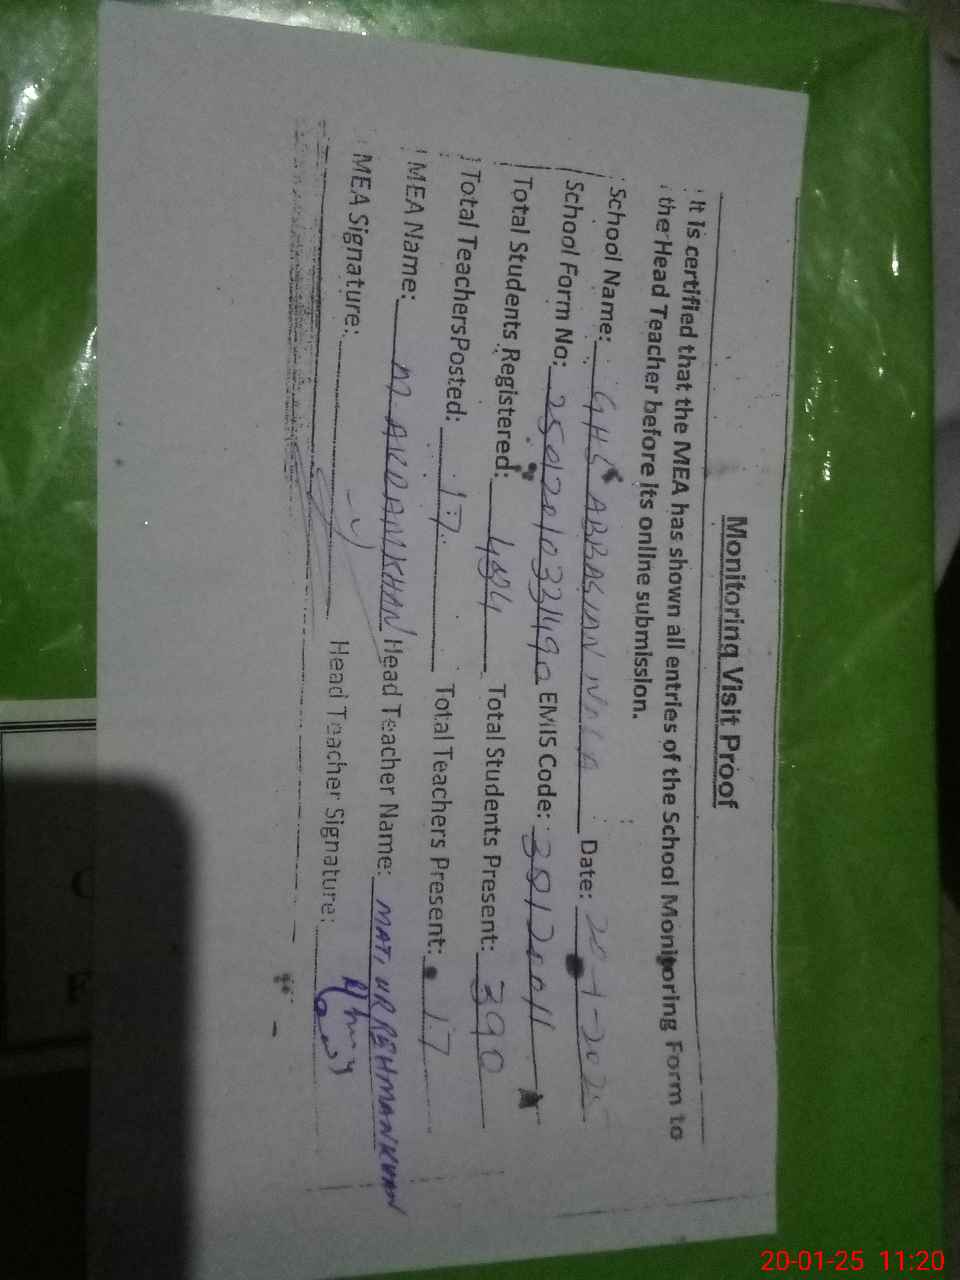 Monitoring Visit Proof
It is certified that the MEA has shown all entries of the School Monitoring Form to
the Head Teacher before its online submission.
School Name: GHS ABBASIAN Date: 20-1-2025
School Form No: EMIS Code:
Total Students Registered: 484 Total Students Present: 390
Total TeachersPosted: 17 Total Teachers Present: 17
MEA Name: M AKRAM KHAN Head Teacher Name: MATI UR REHMAN KHAN
MEA Signature: Head Teacher Signature:
20-01-25 11:20